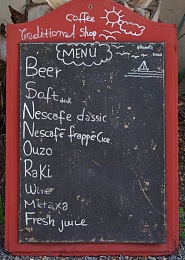 Coffee
Traditional Shop
MENU
Beer
Soft drink
Nescafe classic
Nescafe frappe (ice
Ouzo
Raki
Wine
Metaxa
Fresh juice